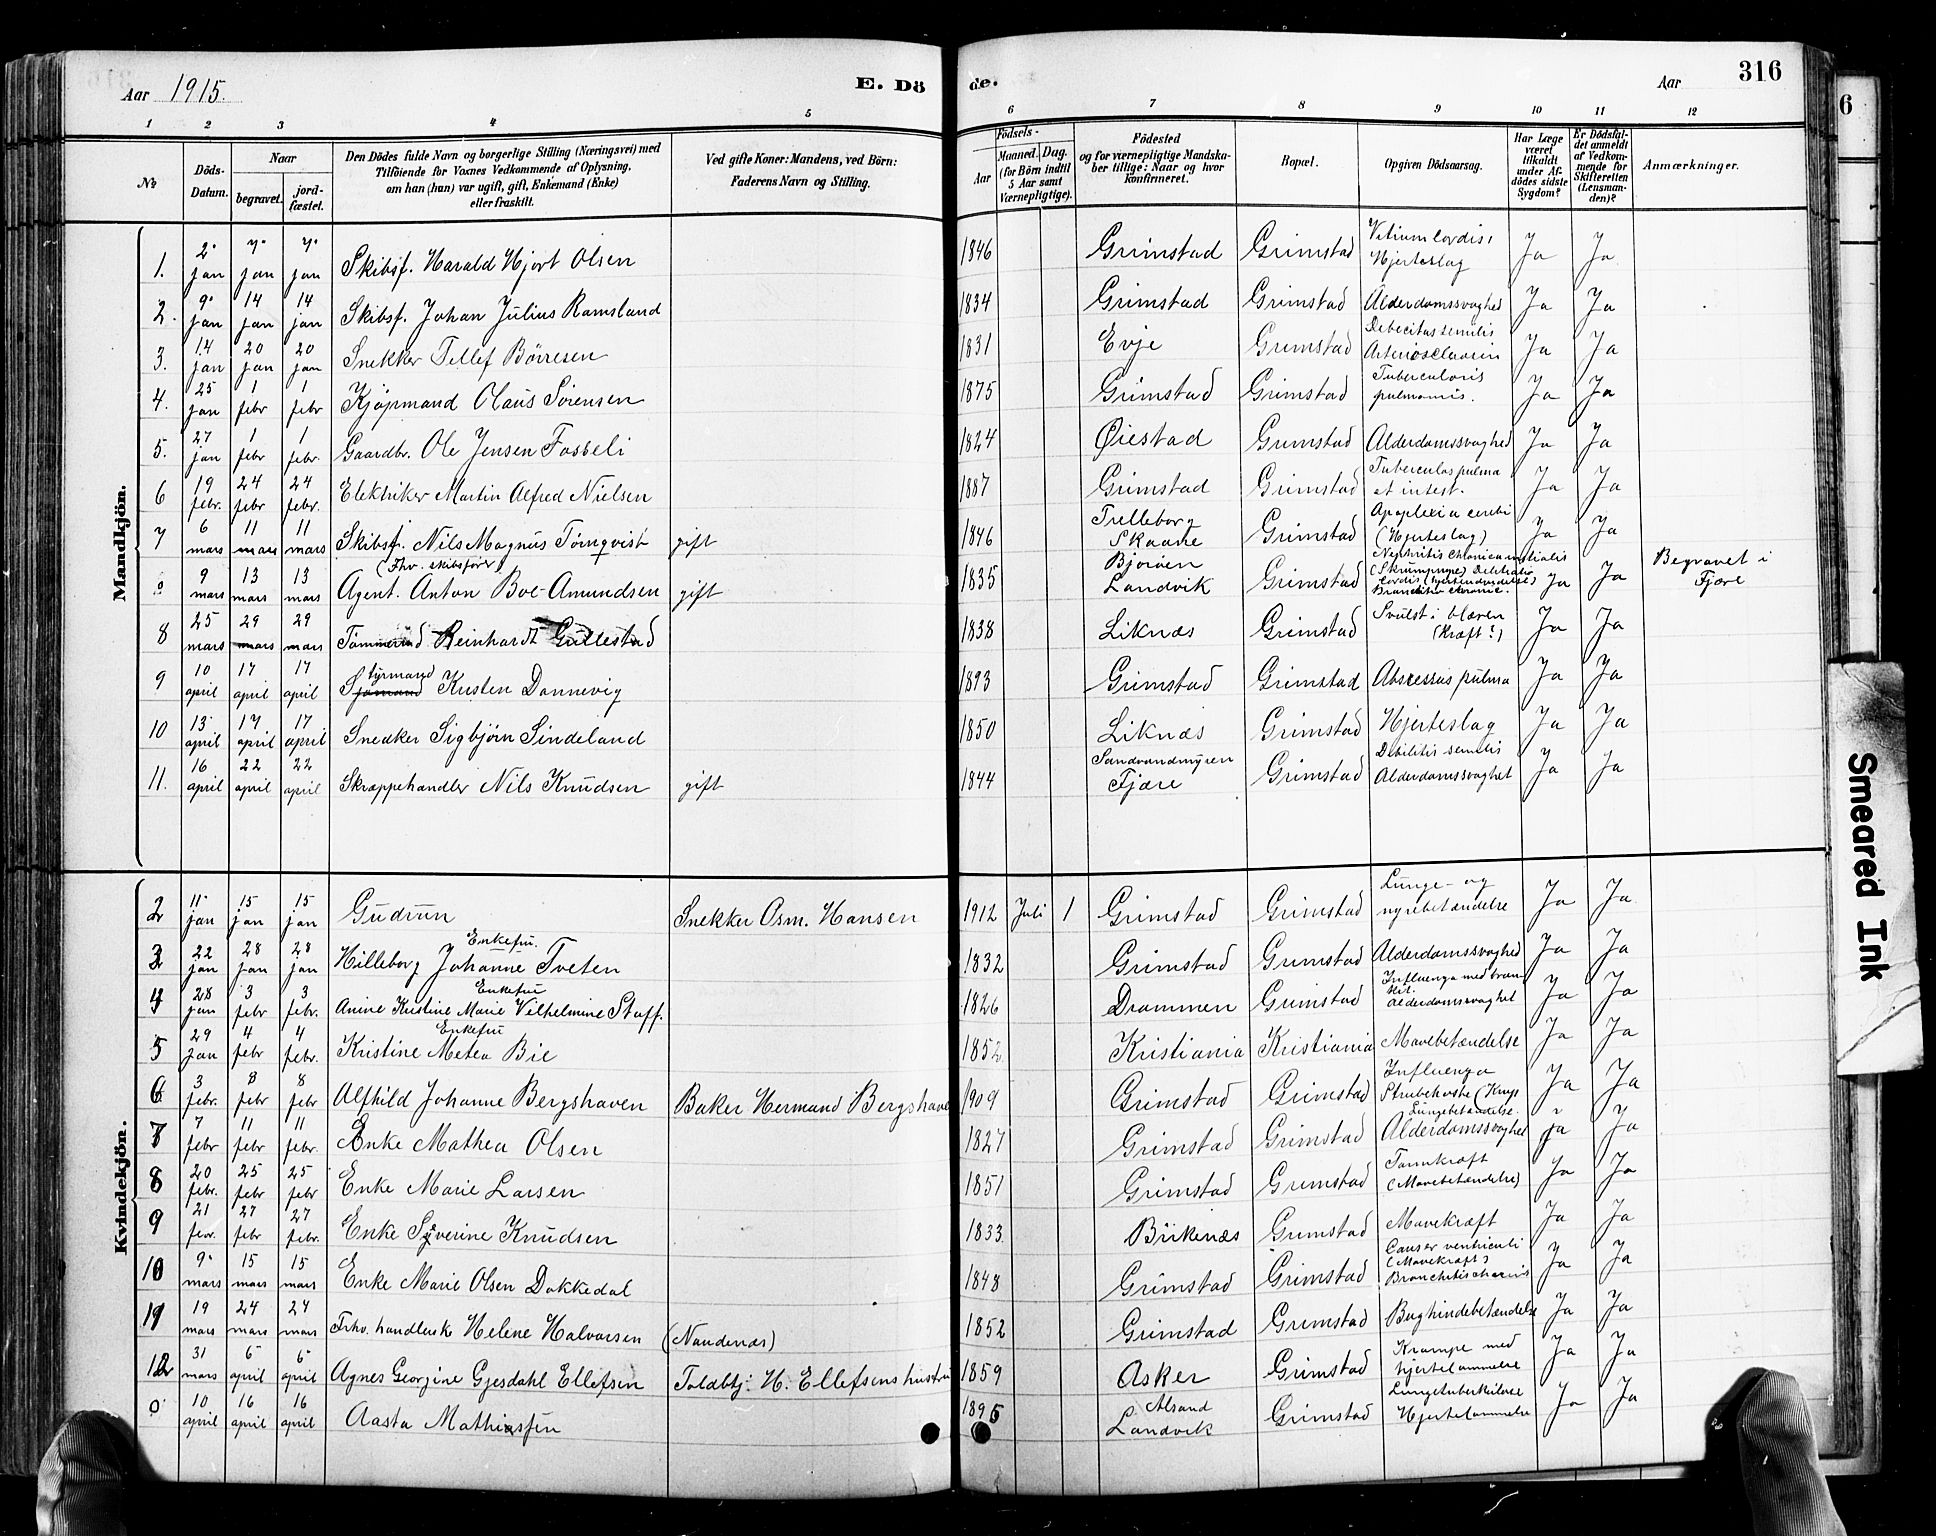 Aar 1915. E. Dö de. Aar 316
1 2 3 4 5 6 7 8 9 10 11 12
№ Döds-Datum. Naar begravet. jordfæstet. Den Dödes fulde Navn og borgerlige Stilling (Næringsvei) med Tilföiende for Voxnes Vedkommende af Oplysning, om han (hun) var ugift, gift, Enkemand (Enke) eller fraskilt. Ved gifte Koner: Mandens, ved Börn: Faderens Navn og Stilling. Födsels- Aar Maaned. Dag. (for Börn indtil 5 Aar samt Værnepligtige). Födested og for værnepligtige Mandskaber tillige: Naar og hvor konfirmeret. Bopæl. Opgiven Dödsaarsag. Har Læge været tilkaldt under Afdödes sidste Sygdom? Er Dödsfaldet anmeldt af Vedkommende for Skifteretten (Lensmanden)? Anmærkninger.
Mandkjön.
1. 2 jan 7 jan 7 jan Skibsf. Harald Hjort Olsen 1846 Grimstad Grimstad Vitium Cordis, Hjerteslag Ja Ja
2. 9 jan 14 jan 14 jan Skibsf. Johan Julius Ramsland 1834 Grimstad Grimstad Alderdomssvaghed Ja Ja
3. 14 jan 20 jan 20 jan Snekker Tellef Börresen 1831 Evje Grimstad Ja Ja
4. 25 jan 1 febr 1 febr Kjøpmand Olaus Sörensen 1875 Grimstad Grimstad Tuberculosis pulmonis. Ja Ja
5. 27 jan 1 febr 1 febr. Gaardbr. Ole Jensen Fosseli 1824 Øiestad Grimstad Alderdomssvaghed Ja Ja
6 19 febr. 24 febr 24 febr Elektriker Martin Alfred Nielsen 1887 Grimstad Grimstad Tuberculos pulma et intest. Ja Ja
7 6 mars 11 mars 11 mars Skibsf. Nils Magnus Törnqvist gift 1846 Trelleborg Skaane Grimstad Apoplexia cerebi (Hjerteslag) Ja Ja
0 9 mars 13 mars 13 mars (Fhv. skibsförer) Agent. Anton Boe-Amundsen gift 1835 Landvik Grimstad Nephritis Chronica (Skrumpnyre) Ja Ja Begravet i Fjære
8 25 mars 29 mars 29 mars Reinhardt Gullestad 1838 Liknæs Grimstad Svulst i blæren (Kræft?) Ja Ja
9 10 april 17 april 17 april Styrmand Kristen Dannevig 1893 Grimstad Grimstad Abscessus pulma Ja Ja
10 13 april 17 april 17 april Snedker Sigbjörn Sindeland 1850 Liknæs Grimstad Hjerteslag Ja Ja
11. 16 april 22 april 22 april Skrappehandler Nils Knudsen gift 1844 Sandvandmyren Fjære Grimstad Debilitis senilis Alderdomssvaghet Ja Ja
Kvindekjön.
2 11 jan 15 jan 15 jan Gudrun Snekker Osm. Hansen 1912 Juli 1 Grimstad Grimstad Lunge- og nyrebetændelse Ja Ja
3 22 jan 28 jan 28 jan Enkefru. Hilleborg Johanne Tveten 1832 Grimstad Grimstad Alderdomssvaghed Ja Ja
4 28 jan 3 febr 3 febr. Enkefru Anine Kristine Marie Vilhelmine Staff. 1826 Drammen Grimstad Influenza med bronkit. Alderdomssvaghet Ja Ja
5 29 jan 4 febr 4 febr. Enkefru Kristine Metea Bie 1852 Kristiania Kristiania Mavebetændelse Ja Ja
6 3 febr. 8 febr 8 febr Alfhild Johanne Bergshaven Baker Hermand Bergshave 1909 Grimstad Grimstad Influenza Strubehoste (Krup Lungebetændelse. Ja Ja
7 7 febr 11 febr 11 febr. Enke Mathea Olsen 1827 Grimstad Grimstad Alderdomssvaghet Ja Ja
8 20 febr. 25 febr 25 febr Enke Marie Larsen 1851 Grimstad Grimstad Tarmkræft (Mavebetændelse) Ja Ja
9 21 febr. 27 febr 27 febr. Enke Syverine Knudsen 1833 Birkenæs Grimstad Mavekræft Ja Ja
10 9 mars 15 mars 15 mars Enke Marie Olsen Dokkedal 1848 Grimstad Grimstad Canser ventriculi (Mavekræft) Ja Ja
11 19 mars 24 mars 24 mars Fhv. handlerske Helene Halvorsen (Nandenæs) 1852 Grimstad Grimstad Bughindebetændelse Ja Ja
12 31 mars 6 april 6 april Agnes Georgine Gjesdahl Ellefsen Toldbtj. H. Ellefsens hustru 1859 Asker Grimstad Krampe med hjertelammelse Ja Ja
0 10 april 16 april 16 april Aasta Mathiassen 1895 Landvik Grimstad Lungetuberkulose Hjertelammelse Ja Ja
6
Smeared Ink